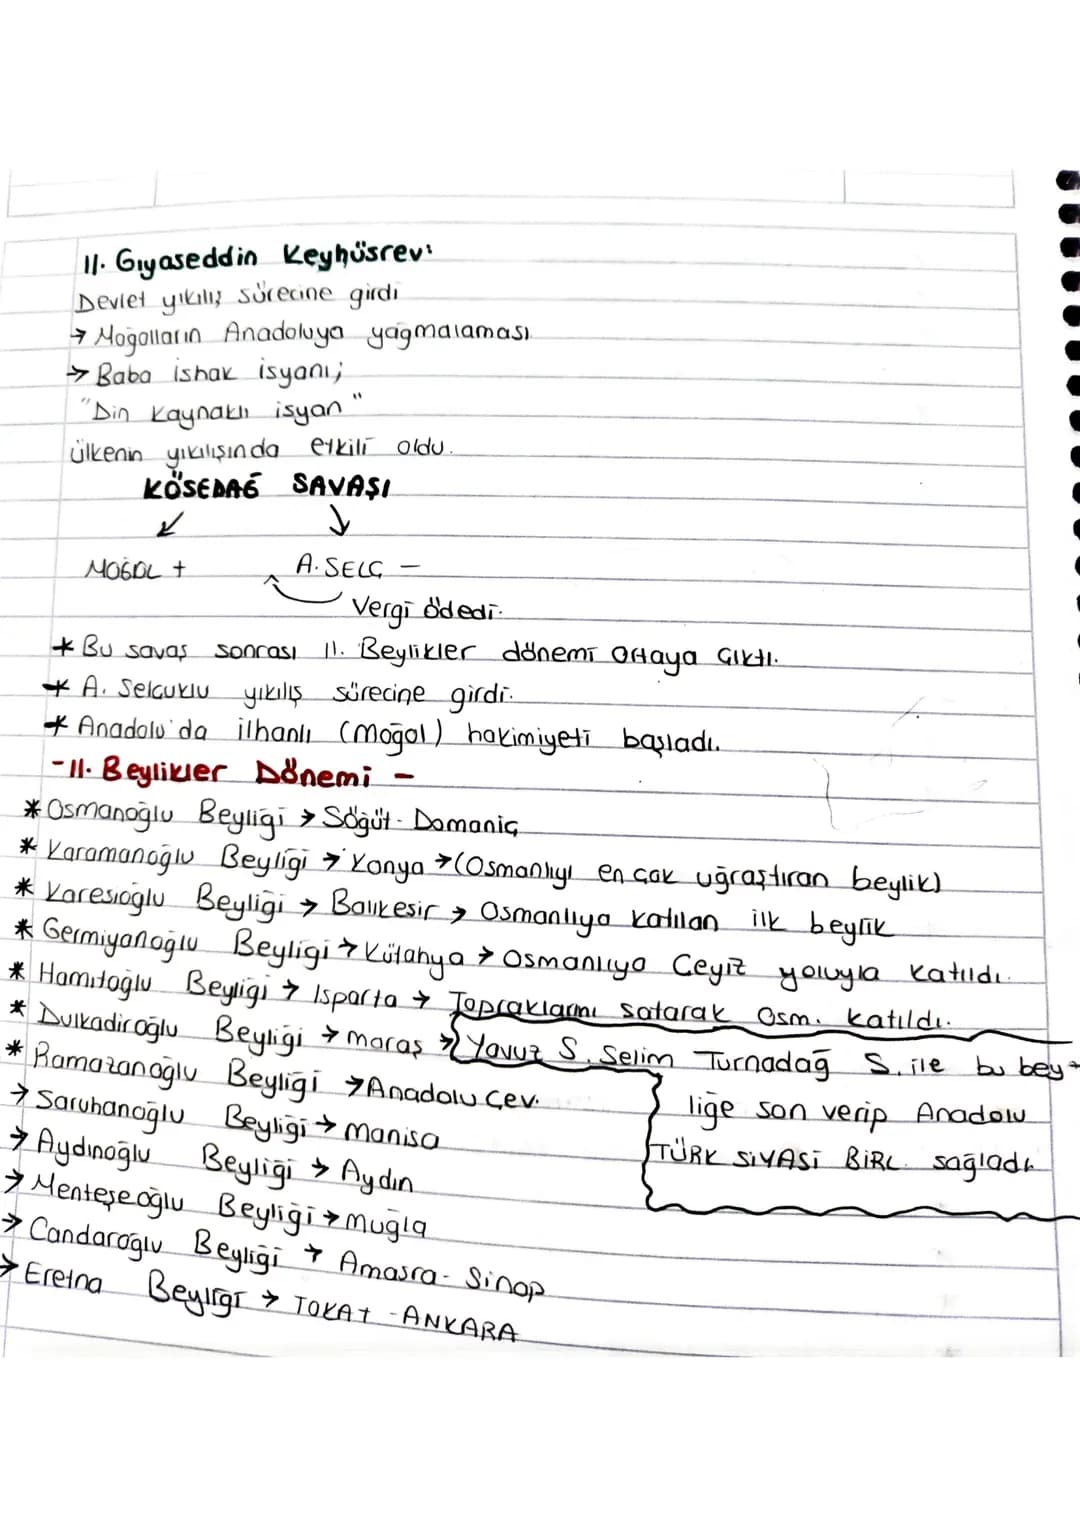 II. Gıyaseddin Keyhüsrev:
Devlet yıkılış sürecine girdi
→ Moğolların Anadoluya yağmalaması
→ Baba ishak isyanı;
"Din kaynaklı isyan"
ülkenin yıkılışında etkili oldu.
KÖSEDAĞ SAVAŞI
↙ ↓
MOĞOL + A. SELÇ -
Vergi ödedi.
* Bu savaş sonrası II. Beylikler dönemi ortaya çıktı.
* A. Selçuklu yıkılış sürecine girdi.
* Anadolu'da ilhanlı (moğol) hakimiyeti başladı.
- II. Beylikler Dönemi -
* Osmanoğlu Beyliği → Söğüt - Domaniç
* Karamanoğlu Beyliği → Konya → (Osmanlıyı en çok uğraştıran beylik)
* Karesioğlu Beyliği → Balıkesir → Osmanlıya katılan ilk beylik
* Germiyanoğlu Beyliği → Kütahya → Osmanlıya Çeyiz yoluyla katıldı.
* Hamitoğlu Beyliği → Isparta → Topraklarını satarak Osm. katıldı.
* Dulkadiroğlu Beyliği → maraş → Yavuz S. Selim Turnadağ S. ile bu bey-
liğe son verip Anadolu
TÜRK SİYASİ BİRL. sağladı
* Ramazanoğlu Beyliği → Anadolu Çev.
→ Saruhanoğlu Beyliği → manisa
→ Aydınoğlu Beyliği → Aydın
→ Menteşeoğlu Beyliği → muğla
→ Candaroğlu Beyliği → Amasra - Sinop
→ Eretna Beyliği → TOKAT - ANKARA